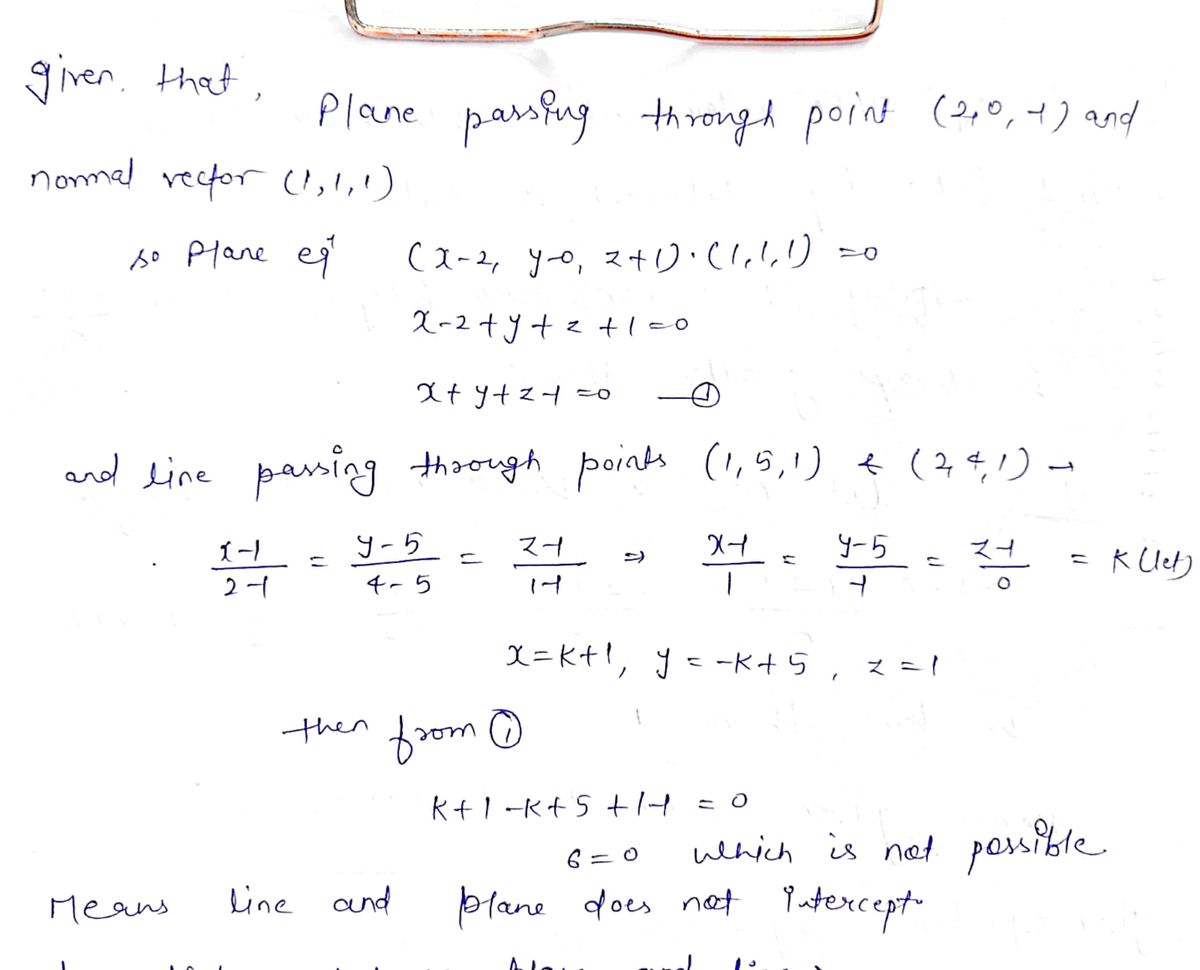 given. that,
Plane passing through point (2,0,-1) and
normal vector (1,1,1)
so Plane eqⁿ (x-2, y-0, z+1)·(1,1,1) =0
x-2+y+z+1=0
x+y+z-1=0 —①
and line passing through points (1,5,1) & (2,4,1) →
(x-1)/(2-1) = (y-5)/(4-5) = (z-1)/(1-1) ⇒ (x-1)/1 = (y-5)/-1 = (z-1)/0 = K (let)
x=k+1, y = -k+5, z=1
then from ①
k+1-k+5+1-1 = 0
6=0 which is not possible
Means line and plane does not intercept